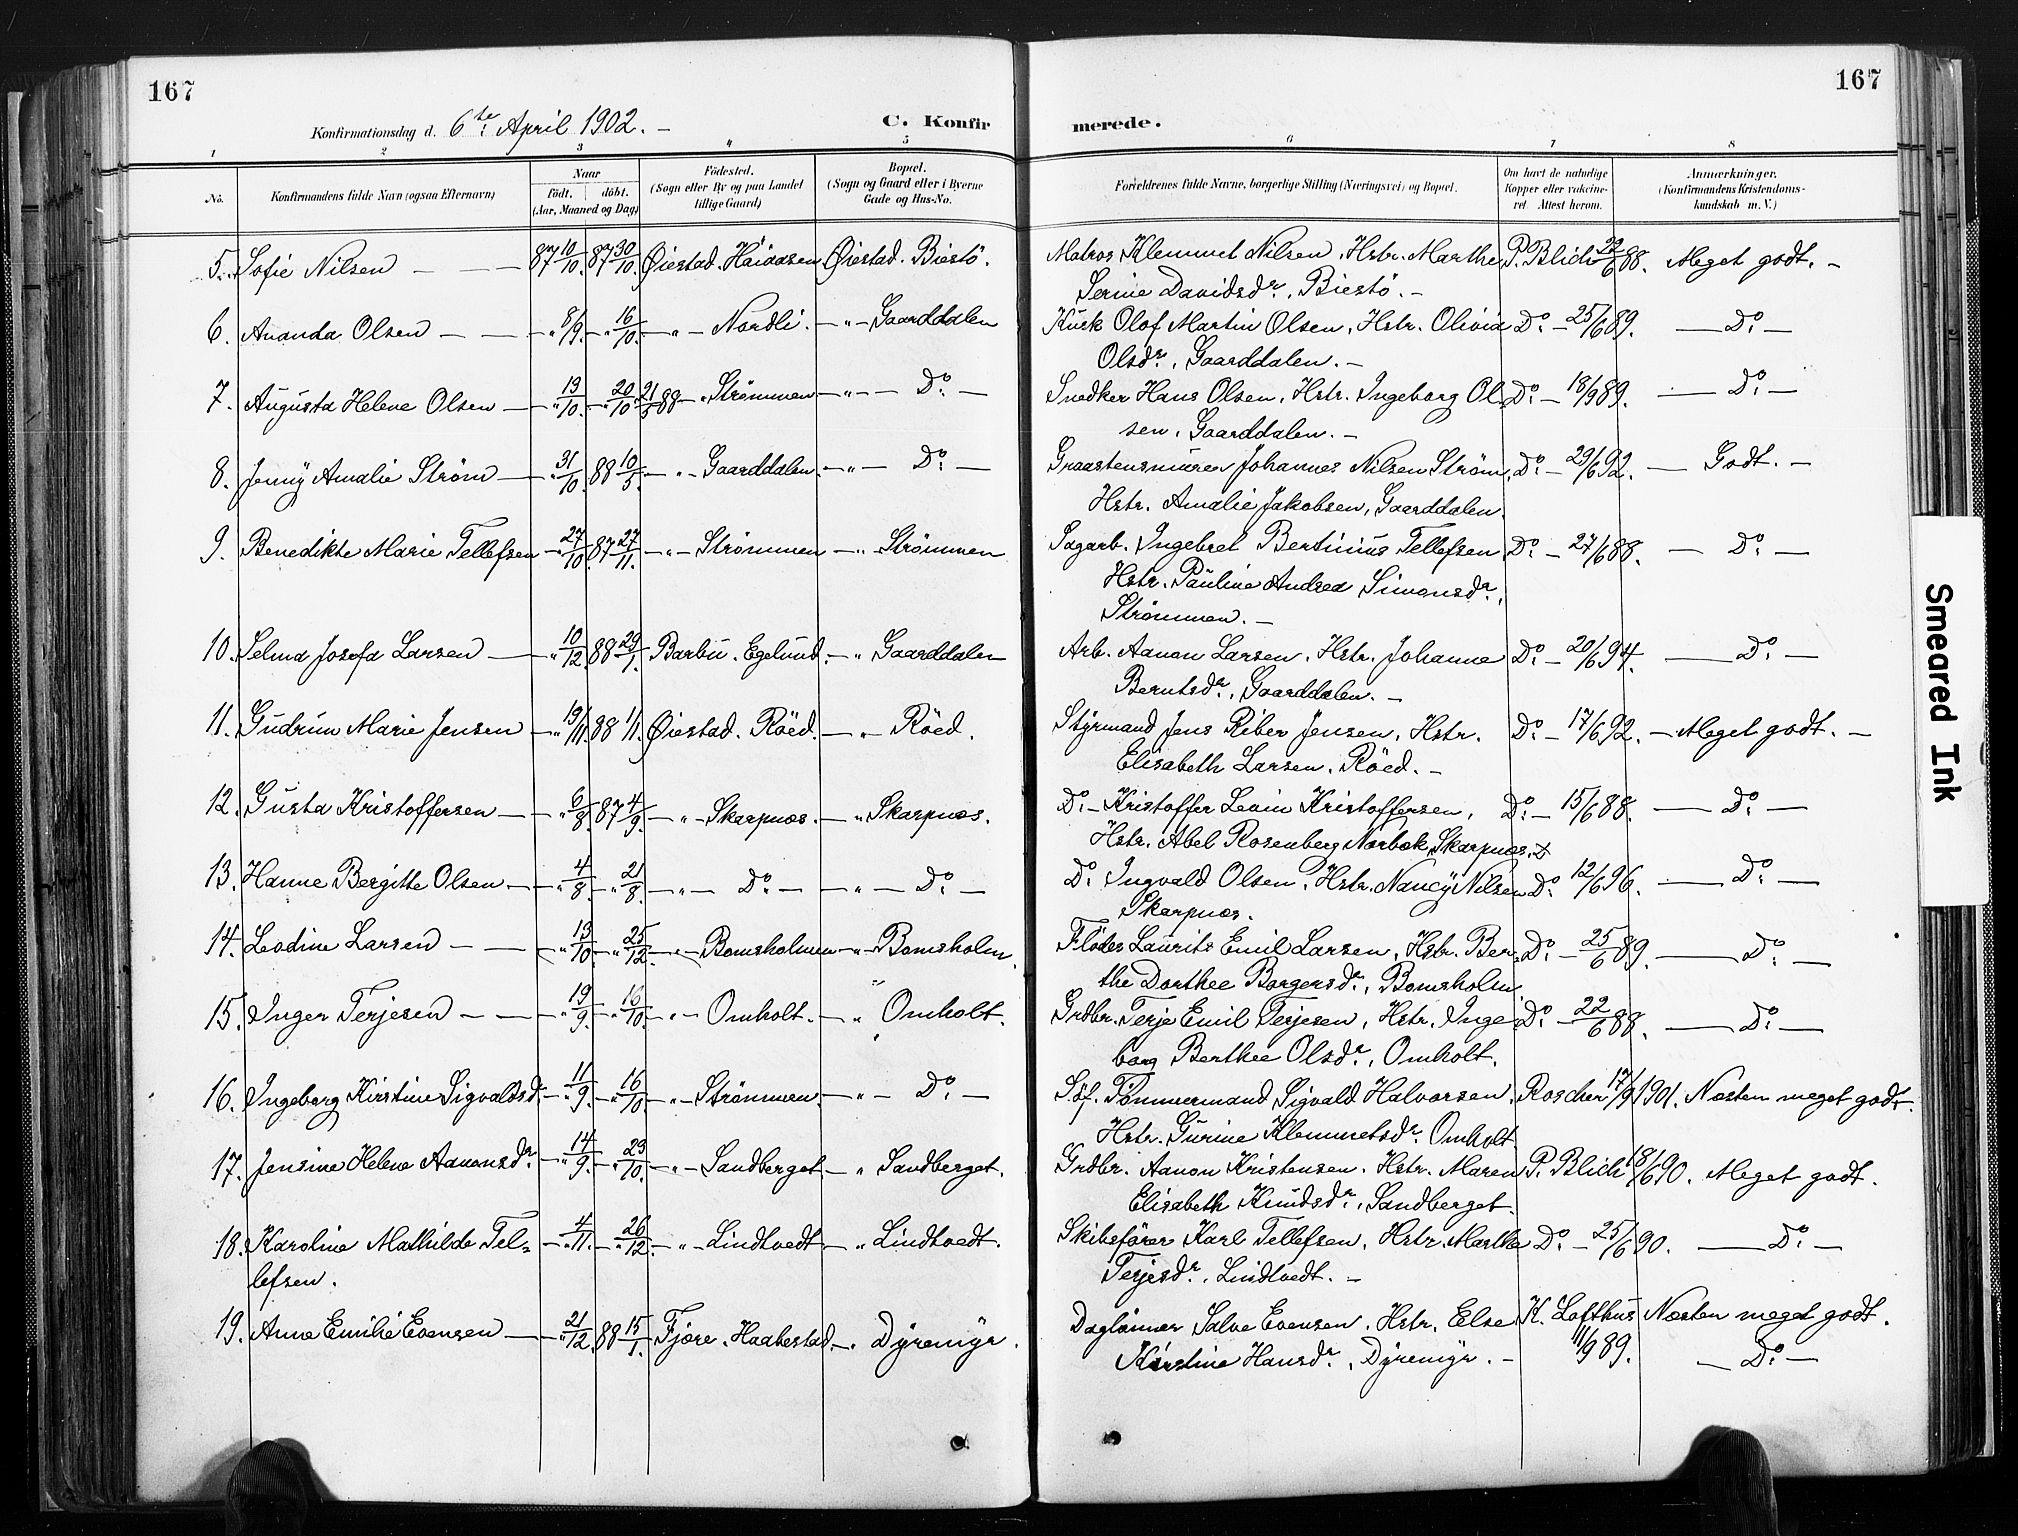 167
167
Konfirmationsdag d. 6te April 1902. –
C. Konfir
merede.
1 2 3 4 5
6 7 8
No.
Konfirmandens fulde Navn (ogsaa Efternavn)
Naar
födt. döbt.
(Aar, Maaned og Dag)
Födested.
(Sogn eller By og paa Landet
tillige Gaard)
Bopæl.
(Sogn og Gaard eller i Byerne
Gade og Hus-No.
Forældrenes fulde Navne, borgerlige Stilling (Næringsvei) og Bopæl.
Om havt de naturlige
Kopper eller vaccine-
ret Attest herom.
Anmærkninger.
(Konfirmandens Kristendoms-
kundskab m. V.)
5. Sofie Nilsen — 87 10/10. 87 30/10. Øiestad. Haaasen Øiestad. Biestö. Matros Klemmet Nilsen, Hstr. Marthe P. Blich 22/6 88. Meget godt. –
Serine Davidsdr., Biestö. –
6. Ananda Olsen — " 8/9 — " 16/10. — " Nordli. — " Gaarddalen Kusk Olof Martin Olsen, Hstr. Olivia Do. – 25/6 89. — Do. –
Olsdr., Gaarddalen. –
7. Augusta Helene Olsen — " 13/10. — " 20/10 21/5 88 — " Strømmen — " — Do. – Snedker Hans Olsen, Hstr. Ingeborg Ol- Do. – 18/9 89. — Do. –
sen, Gaarddalen. –
8. Jenny Amalie Strøm — " 31/10. 88 10/5. — " Gaarddalen. — " — Do. – Graastensmurer Johannes Nilsen Strøm, Do. – 29/6 92. — Godt. –
Hstr. Amalie Jakobsen, Gaarddalen.
9. Benedikte Marie Tellefsen — " 27/10. 87 27/11. — " Strømmen — " Strømmen Sagarb. Ingebret Bertinius Tellefsen, Do. – 27/6 88. — Do. –
Hstr. Pauline Andrea Simonsdr.,
Strømmen. –
10. Selma Josefa Larsen — " 10/12. 88 29/1. Barbu. Egelund. — " Gaarddalen Arb. Aanon Larsen, Hstr. Johanne Do. – 20/6 94. — Do. –
Berntsdr., Gaarddalen. –
11. Gudrun Marie Jensen — " 19/11. 88 1/1. Øiestad. Röed. — " Röed. Styrmand Jens Riber Jensen, Hstr. Do. – 17/6 92. – Meget godt. –
Elisabeth Larsen, Röed. –
12. Gusta Kristoffersen — " 6/8. 87 4/9. — " Skarpnæs. — " Skarpnæs. Do. – Kristoffer Levin Kristoffersen, Do. – 15/6 88. — Do. –
Hstr. Abel Rosenberg Nørbek, Skarpnæs.
13. Hanne Bergitte Olsen — " 4/8. — " 21/8. — " — Do. – — " — Do. – Do. Ingvald Olsen, Hstr. Nancy Nilsen Do. 12/6 96. — Do. –
Skarpnæs.
14. Leodine Larsen — " 13/10. — " 25/12. — " Bomsholmen — " Bomsholm. Fløder Laurits Emil Larsen, Hstr. Ber- Do. – 25/6 89. — Do. –
the Dorthee Borgersdr., Bomsholm
15. Inger Terjesen — " 19/9. — " 16/10. — " Omholt. — " Omholt. Grdbr. Terje Emil Terjesen, Hstr. Inge- Do. – 22/6 88. — Do. –
borg Berthee Olsdr., Omholt.
16. Ingeborg Kirstine Sigvaldsd. — " 11/9. — " 16/10. — " Strømmen. — " — Do. – Söf. Tömmermand Sigvald Halvorsen, Roscher 17/9 1901. Næsten meget godt.
Hstr. Gurine Klemmetsdr. Omholt.
17. Jensine Helene Aanonsdr. — " 14/9. — " 23/10. — " Sandberget. — " Sandberget. Grdbr. Aanon Kristensen. Hstr. Maren P. Blich 18/6 90. Meget godt.
Elisabeth Knudsdr., Sandberget.
18. Karoline Mathilde Tel- — " 4/11. — " 26/12. — " Lindtvedt — " Lindtvedt. Skibsfører Karl Tellefsen, Hstr. Marthe Do. – 25/6 90. — Do. –
lefsen. Terjesdr., Lindtvedt. –
19. Anne Emilie Evensen — " 21/12. 88 15/1. Fjære. Haabestad — " Dyremyr. Daglønner Salve Evensen, Hstr. Else K. Lofthus Næsten meget godt.
Kirstine Hansdr., Dyremyr. – 11/9 89. — Do. –
Smeared Ink